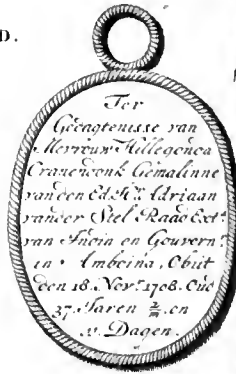 D.
Ter
Gedagtenisse van
Mevrouw Hillegonda
Cranendonk Gemalinne
van den Ed. Hr. Adriaan
vander Stel Raad Ext.
van India en Gouvern.
in Amboina, Obiit
den 18. Nov. 1708. Oud
37. Jaren 2/m en
Dagen.